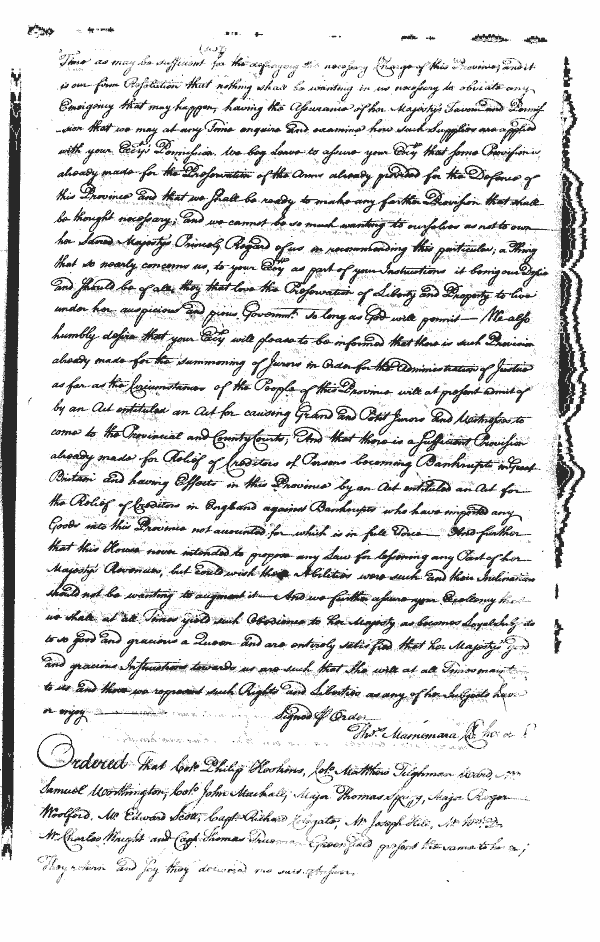 Time as may be sufficient for the defraying the necessry Charge of this Province; and it
is our firm Resolution that nothing shall be wanting in us necessry to obviate any
Emergency that may happen, having the Assurance of her Majestys Favour and Permis
=sion that we may at any Time enquire and examine how such Supplies are applied
with your Excys Permission. We beg Leave to assure your Excy that some Provision is
already made for the Preservation of the Arms already provided for the Defence of
this Province and that we shall be ready to make any farther Provision that shall
be thought necessary; and we cannot be so much wanting to ourselves as not to own
her Sacred Majestys Princely Regard of us in recommending this particular, a thing
that so nearly concerns us, to your Excy as part of your Instructions it being our Desire
and should be of all, they that love the Preservation of Liberty and Property to live
under her auspicious and pious Governmt. so long as God will permit — We also
humbly desire that your Excy will please to be informed that there is such Provision
already made for the summoning of Jurors in Order for the Administration of Justice
as far as the Circumstances of the People of this Province will at present admit of
by an Act entituled an Act for causing Grand and Petit Jurors and Witnesses to
come to the Provincial and County Courts, And that there is a sufficient Provision
already made for Relief of Creditors of Persons becoming Bankrupts in Great
Britain and having Effects in this Province by an Act entituled an Act for
the Relief of Creditors in England against Bankrupts who have imported any
Goods into this Province not accounted for, which is in full Force — And further
that this House never intended to propose any Law for lessening any Part of her
Majestys Revenues, but could wish their Abilities were such and their Inclinations
should not be wanting to augment it — And we further assure your Excellency that
we shall at all Times yield such Obedience to her Majesty as becomes Loyal Subjects
to so good and gracious a Queen and are entirely satisfied that her Majestys good
and gracious Instructions towards us are such that she will at all Times maint
to us and those we represent such Rights and Liberties as any of her Subjects have
or enjoy — Signed P Order
Thos. Macnemara Cl
Ordered that Colo. Philip Hoskins, Colo. Matthew Tilghman Ward,
Samuel Worthington, Colo. John Mackall, Major Thomas Sprigg, Major Roger
Woolford, Mr Edward Scott, Capt Richard Colegate, Mr Joseph Hill,
Mr Charles Wright and Capt Thomas Trueman Greenfield present the same to
They return and say they delivered